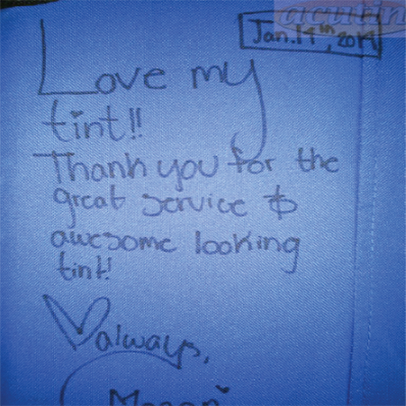 Jan. 19th, 2019
Love my
tint!!
Thank you for the
great service &
awesome looking
tint!
always,